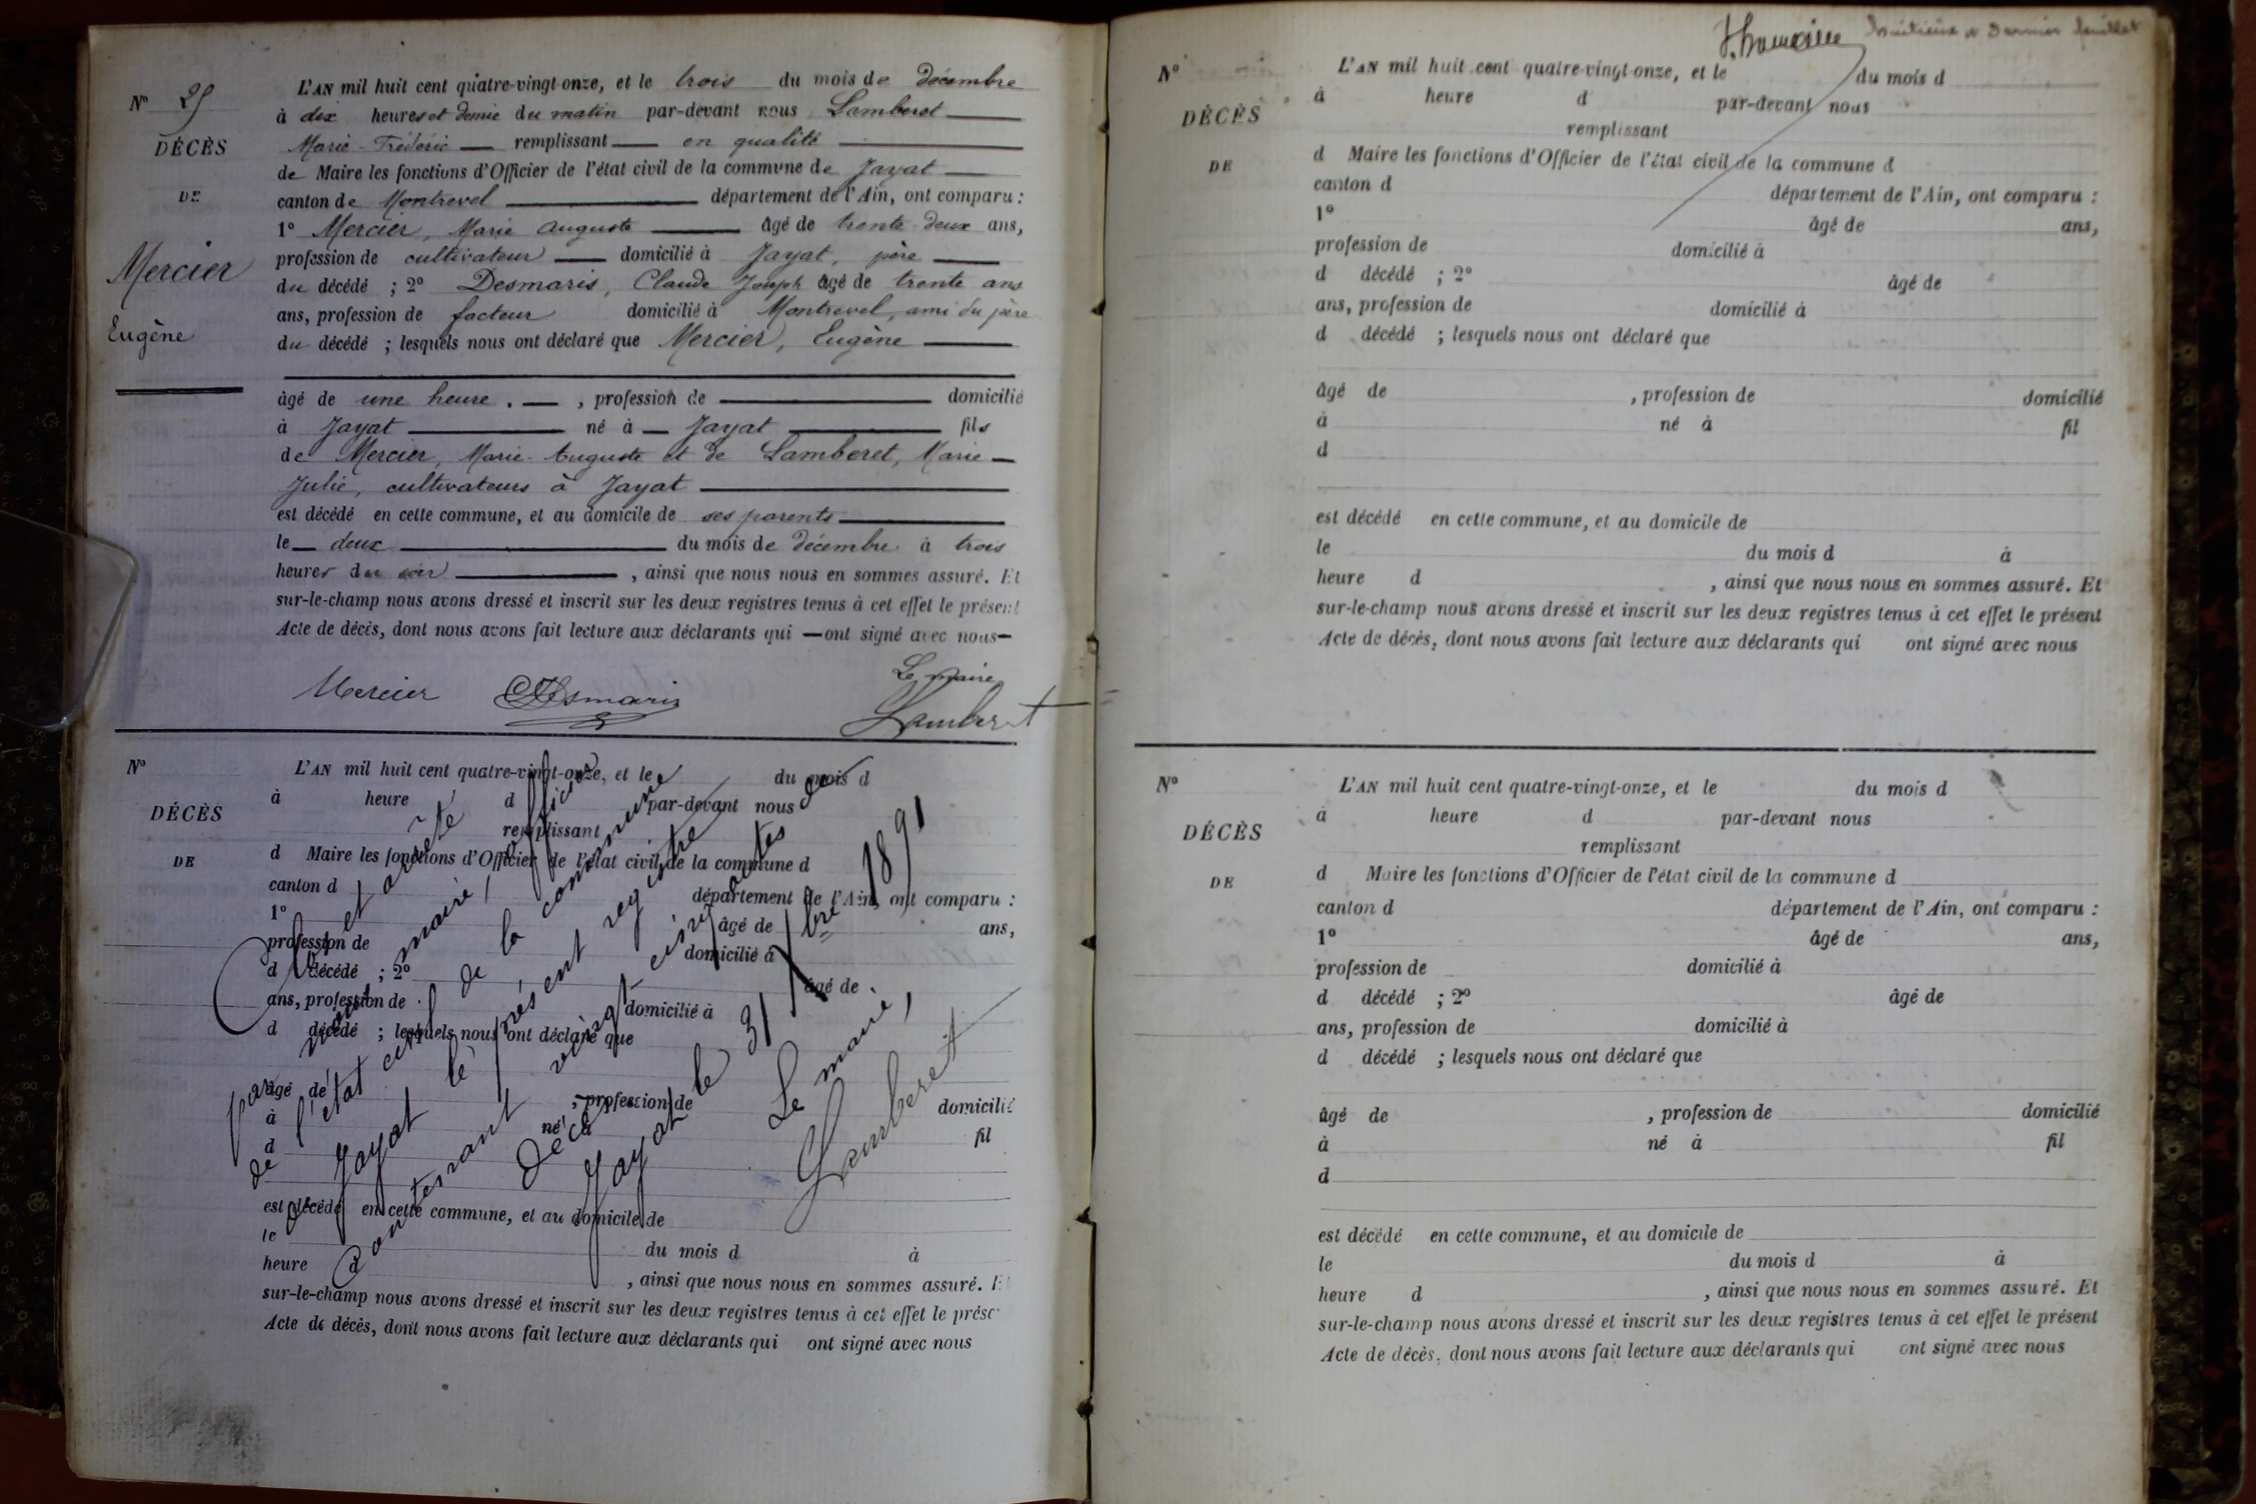 N° 25
DÉCÈS
DE
Mercier
Eugène
L'AN mil huit cent quatre-vingt-onze, et le trois du mois de Décembre
à dix heures et demie du matin par-devant nous Lamberet
Marie-Fréderic remplissant en qualité
de Maire les fonctions d'Officier de l'état civil de la commune de Jayat
canton de Montrevel département de l'Ain, ont comparu :
1° Mercier, Marie Auguste âgé de trente-deux ans,
profession de cultivateur domicilié à Jayat, père
du décédé ; 2° Desmaris, Claude Joseph âgé de trente ans
ans, profession de facteur domicilié à Montrevel, ami du père
du décédé ; lesquels nous ont déclaré que Mercier, Eugène
âgé de une heure. , profession de domicilié
à Jayat né à Jayat fils
de Mercier, Marie-Auguste et de Lamberet, Marie
Julie, cultivateurs à Jayat
est décédé en cette commune, et au domicile de ses parents
le deux du mois de décembre à trois
heures du soir , ainsi que nous nous en sommes assuré. Et
sur-le-champ nous avons dressé et inscrit sur les deux registres tenus à cet effet le présent
Acte de décès, dont nous avons fait lecture aux déclarants qui ont signé avec nous
Mercier Desmaris Le maire
Lamberet
N°
DÉCÈS
DE
L'AN mil huit cent quatre-vingt-onze, et le du mois d
à heure d par-devant nous
remplissant
d Maire les fonctions d'Officier de l'état civil de la commune d
canton d département de l'Ain, ont comparu :
1° âgé de ans,
profession de domicilié à
d décédé ; 2° âgé de
ans, profession de domicilié à
d décédé ; lesquels nous ont déclaré que
âgé de , profession de domicilié
à né à fil
d
est décédé en cette commune, et au domicile de
le du mois d à
heure d , ainsi que nous nous en sommes assuré. E
sur-le-champ nous avons dressé et inscrit sur les deux registres tenus à cet effet le prése
Acte de décès, dont nous avons fait lecture aux déclarants qui ont signé avec nous
Clos et arrêté
par nous maire, officier
de l'état civil de la commune de
Jayat le présent registre
contenant vingt cinq actes
de Décès
Jayat le 31 Xbre 1891
Le maire,
Lamberet
huitième & dernier feuillet
N°
DÉCÈS
DE
L'AN mil huit cent quatre-vingt-onze, et le du mois d
à heure d par-devant nous
remplissant
d Maire les fonctions d'Officier de l'état civil de la commune d
canton d département de l'Ain, ont comparu :
1° âgé de ans,
profession de domicilié à
d décédé ; 2° âgé de
ans, profession de domicilié à
d décédé ; lesquels nous ont déclaré que
âgé de , profession de domicilié
à né à fil
d
est décédé en cette commune, et au domicile de
le du mois d à
heure d , ainsi que nous nous en sommes assuré. Et
sur-le-champ nous avons dressé et inscrit sur les deux registres tenus à cet effet le présent
Acte de décès, dont nous avons fait lecture aux déclarants qui ont signé avec nous
N°
DÉCÈS
DE
L'AN mil huit cent quatre-vingt-onze, et le du mois d
à heure d par-devant nous
remplissant
d Maire les fonctions d'Officier de l'état civil de la commune d
canton d département de l'Ain, ont comparu :
1° âgé de ans,
profession de domicilié à
d décédé ; 2° âgé de
ans, profession de domicilié à
d décédé ; lesquels nous ont déclaré que
âgé de , profession de domicilié
à né à fil
d
est décédé en cette commune, et au domicile de
le du mois d à
heure d , ainsi que nous nous en sommes assuré. Et
sur-le-champ nous avons dressé et inscrit sur les deux registres tenus à cet effet le présent
Acte de décès, dont nous avons fait lecture aux déclarants qui ont signé avec nous